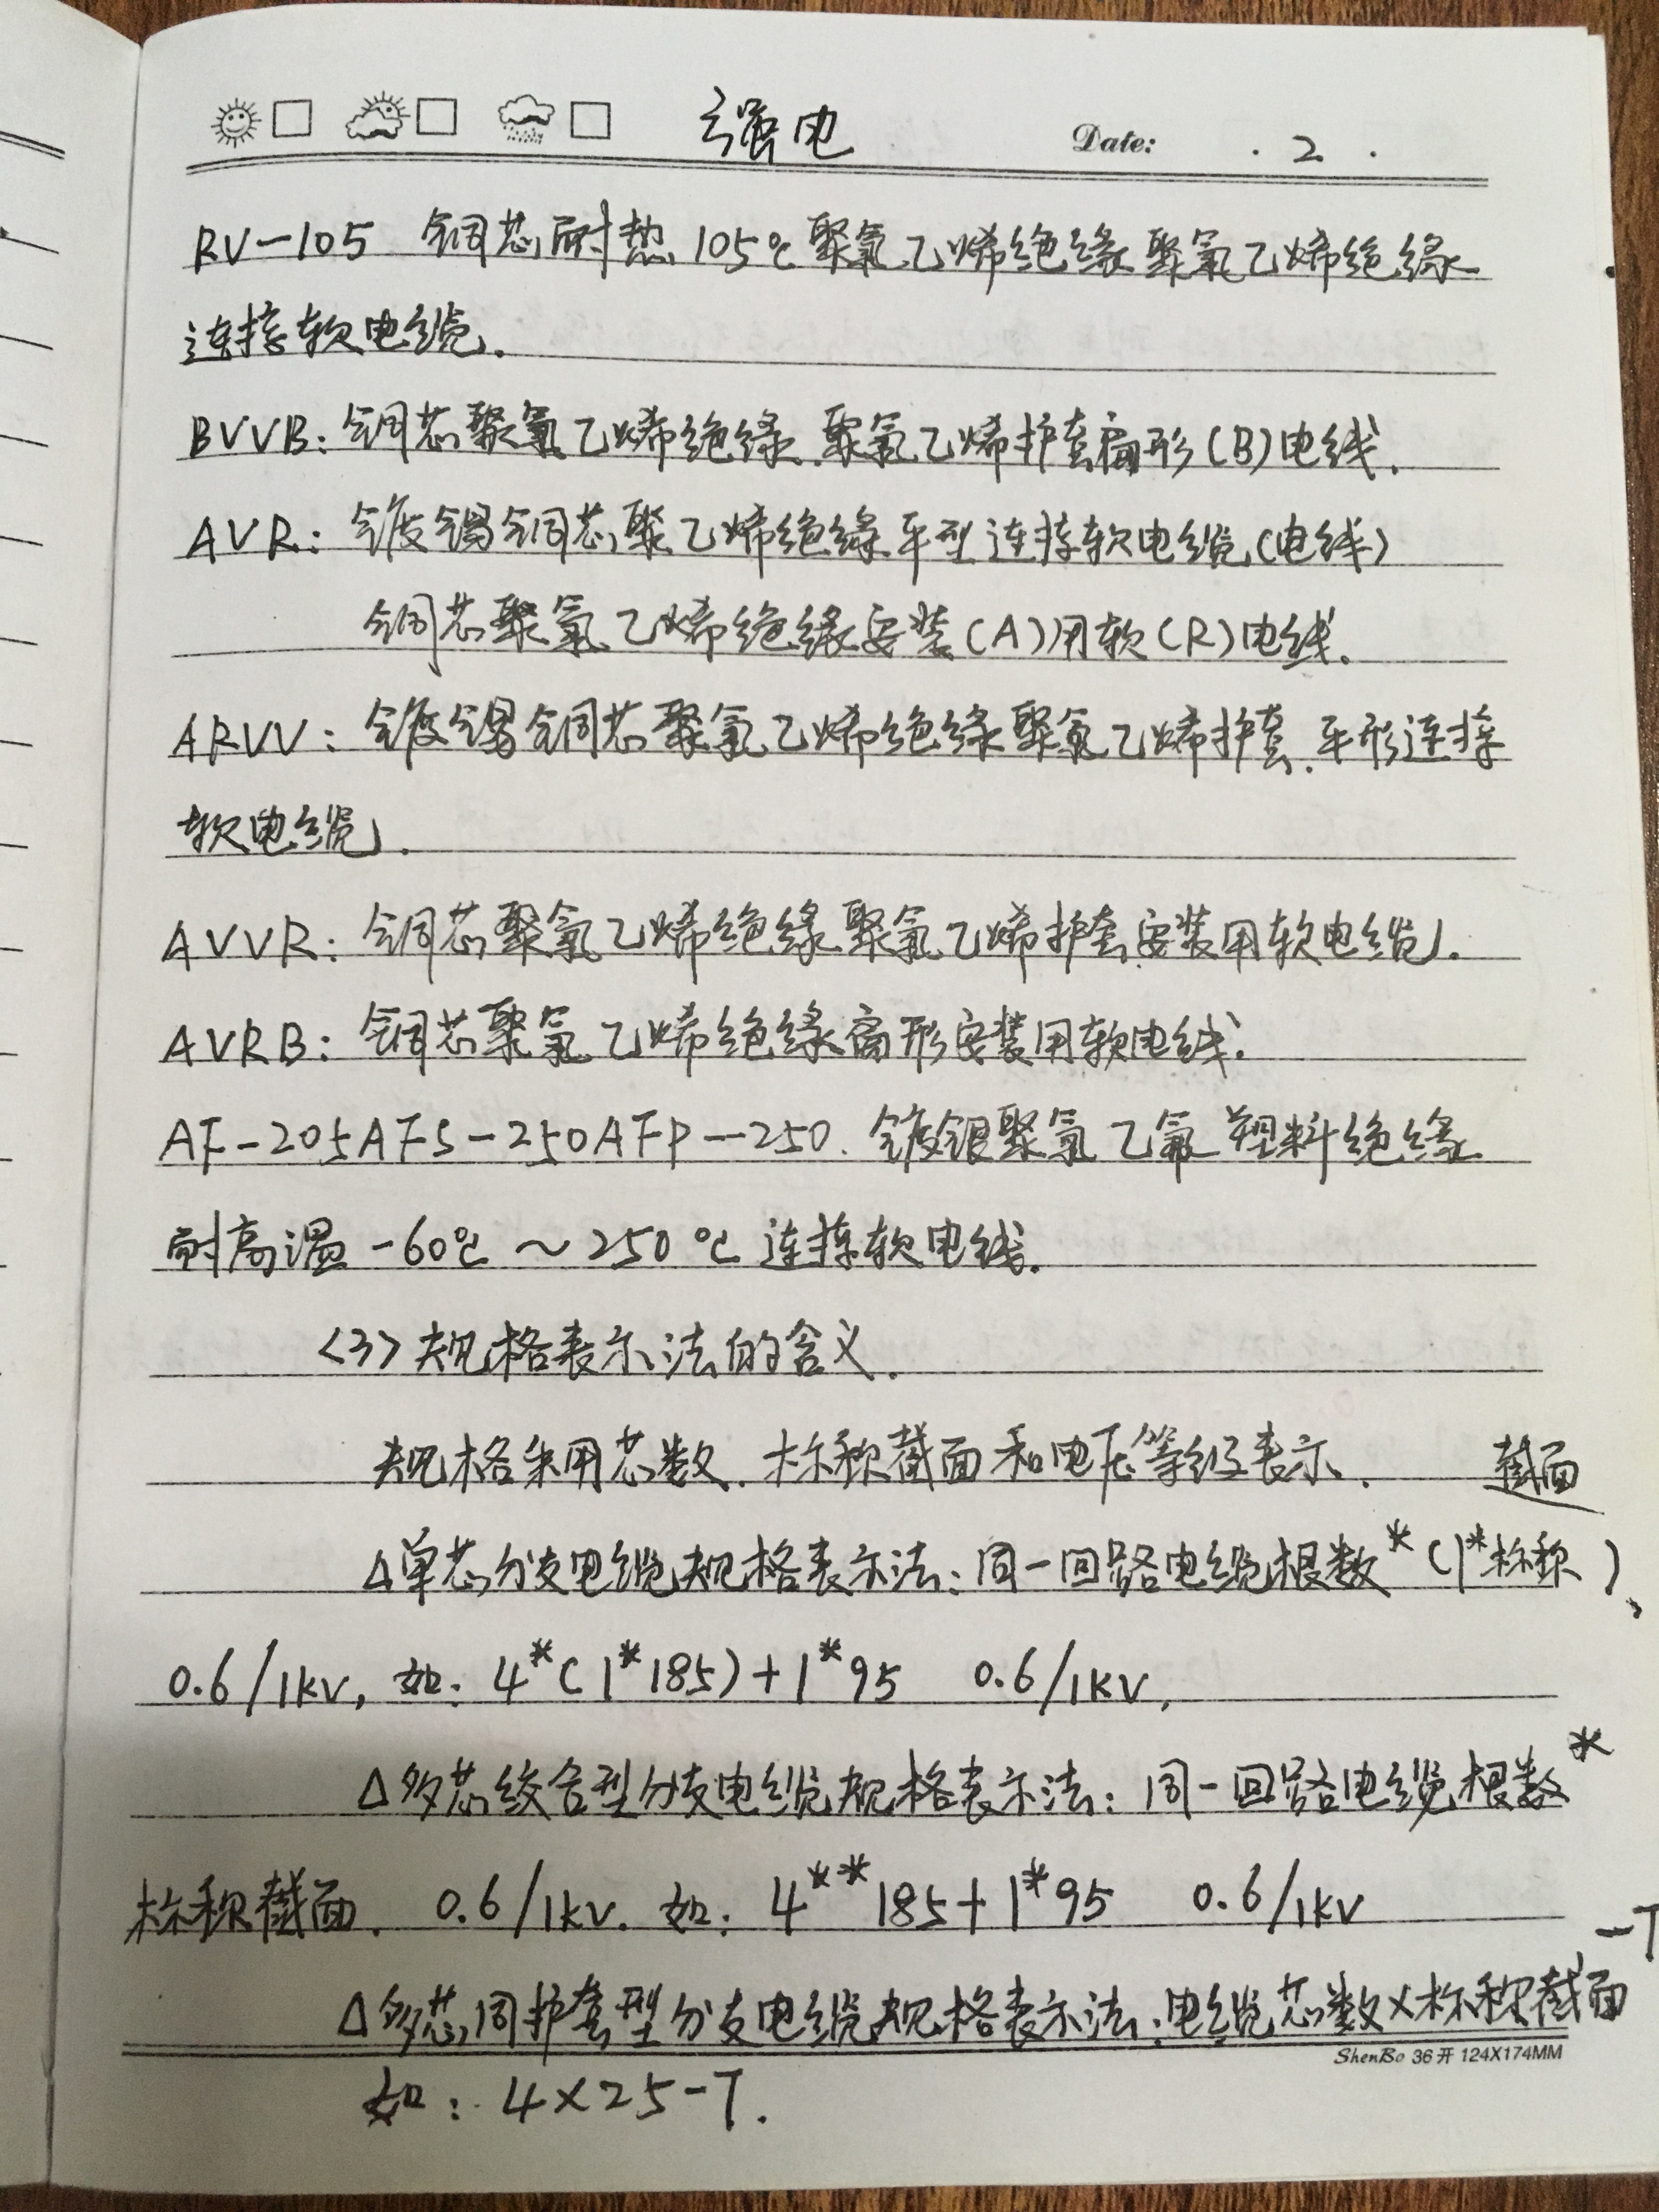 强电 Date: . 2 .
RV-105 铜芯耐热105℃聚氯乙烯绝缘聚氯乙烯绝缘
连接软电缆.
BVVB:铜芯聚氯乙烯绝缘.聚氯乙烯护套扁形(B)电线.
AVR:镀锡铜芯聚乙烯绝缘平型连接软电缆(电线)
铜芯聚氯乙烯绝缘安装(A)用软(R)电线.
ARVV:镀锡铜芯聚氯乙烯绝缘聚氯乙烯护套.平形连接
软电缆.
AVVR:铜芯聚氯乙烯绝缘聚氯乙烯护套安装用软电缆.
AVRB:铜芯聚氯乙烯绝缘扁形安装用软电线.
AF-205AFS-250AFP--250.镀银聚氯乙氟塑料绝缘
耐高温-60℃~250℃连接软电线.
<3>规格表示法的含义.
规格采用芯数.标称截面和电压等级表示.
截面
Δ单芯分支电缆规格表示法:同一回路电缆根数*(1*标称)、
0.6/1kV,如:4*(1*185)+1*95 0.6/1KV,
Δ多芯绞合型分支电缆规格表示法:同一回路电缆根数*
标称截面. 0.6/1kV.如:4**185+1*95 0.6/1KV
-T
Δ多芯同护套型分支电缆规格表示法:电缆芯数×标称截面
ShenBo 36开 124X174MM
如:4×25-T.